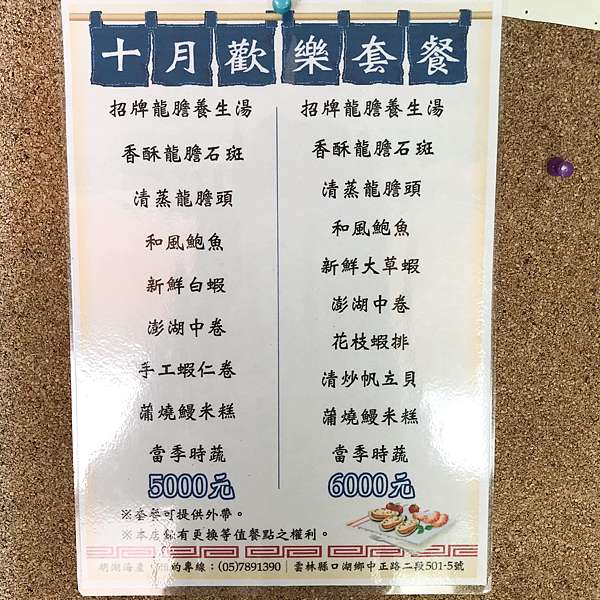 十月歡樂套餐
招牌龍膽養生湯
香酥龍膽石斑
清蒸龍膽頭
和風鮑魚
新鮮白蝦
澎湖中卷
手工蝦仁卷
蒲燒鰻米糕
當季時蔬
5000元
招牌龍膽養生湯
香酥龍膽石斑
清蒸龍膽頭
和風鮑魚
新鮮大草蝦
澎湖中卷
花枝蝦排
清炒帆立貝
蒲燒鰻米糕
當季時蔬
6000元
※套餐可提供外帶。
※本店保有更換等值餐點之權利。
明湖海產 預約專線：(05)7891390 雲林縣口湖鄉中正路二段501-5號